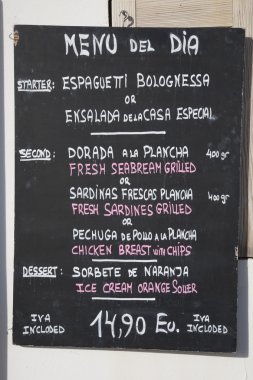 MENU DEL DIA
STARTER: ESPAGUETTI BOLOGNESSA
OR
ENSALADA DE LA CASA ESPECIAL
SECOND: DORADA A LA PLANCHA 400 gr
FRESH SEABREAM GRILLED
OR
SARDINAS FRESCAS PLANCHA 400 gr
FRESH SARDINES GRILLED
OR
PECHUGA DE POLLO A LA PLANCHA
CHICKEN BREAST WITH CHIPS
DESSERT: SORBETE DE NARANJA
ICE CREAM ORANGE SOLLER
IVA INCLUDED 14,90 Eu. IVA INCLUDED